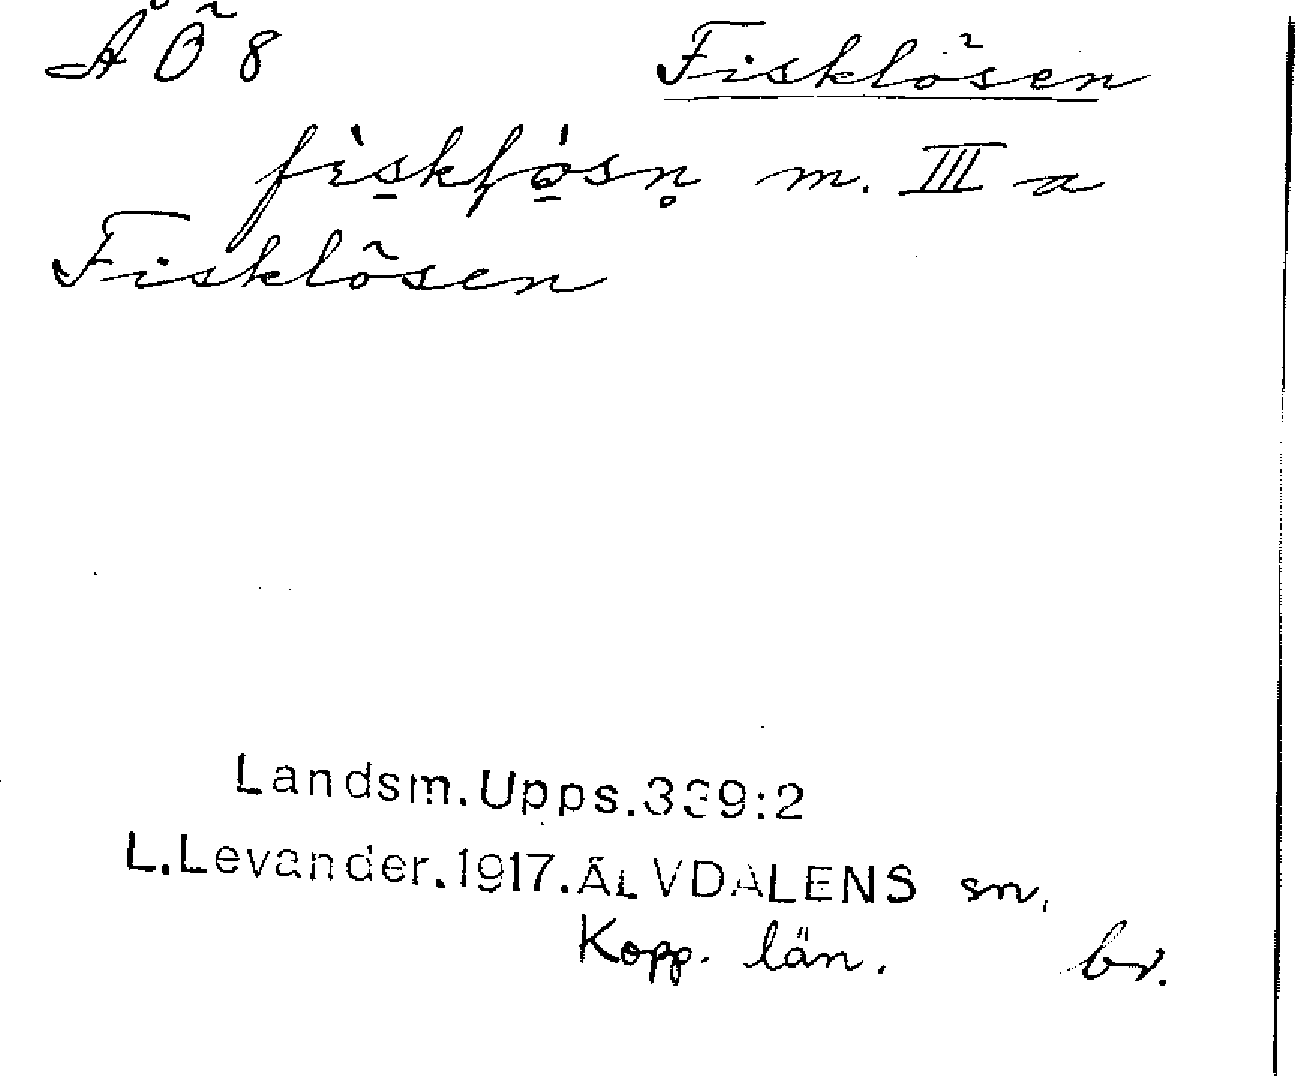 ÅÖ8 Fisklösen
m. III a
Fisklösen
Landsm.Upps.339:2
L.Levander.1917.ÄLVDALENS sn.
Kopp. län. br.